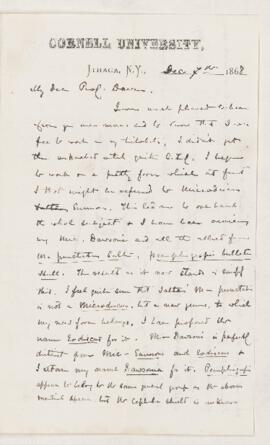 CORNELL UNIVERSITY,
ITHACA, N.Y., Dec 7th 1868
My dear Prof. Dawson
I was much pleased to hear
from you once more and to know that I was
free to work on my trilobite, I didn't get
the
to work on a which at first
I thought might be referred to Microdiscus
Emmons. This led me to overhaul
the whole subject & I have been reviewing
my Mic. Dawsoni and all the allied forms
M. punctatus Salter,
Shell. The result as it now stands is
this. I feel quite sure that Salter's Mic punctatus
is not a Microdiscus, but a new genus, to which
my new form belongs, I have proposed the
name Eodiscus for it. Mic Dawsoni is perfectly
distinct from Mic - Emmons and Eodiscus &
I retain my name Dawsonia for it.
appears to belong to the same group as the above
but the cephalic shield is unknown